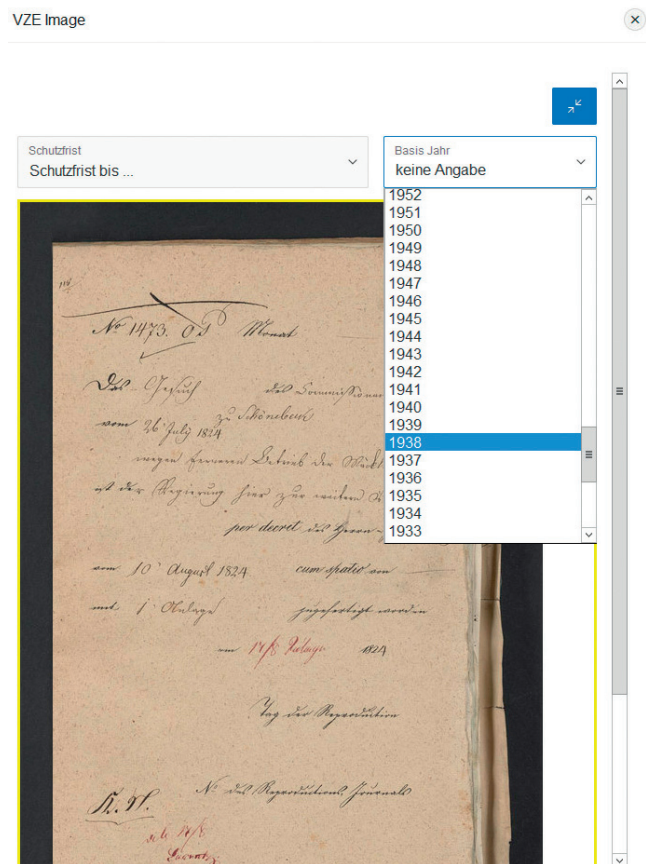 VZE Image
Schutzfrist
Schutzfrist bis ...
Basis Jahr
keine Angabe
1952
1951
1950
1949
1948
1947
1946
1945
1944
1943
1942
1941
1940
1939
1938
1937
1936
1935
1934
1933
No 1473. Monat
Das Gesuch des
vom 26 July 1824 zu Schönebeck
wegen ferneren Betrieb der
ist der Regierung hier zur weitern
per decret des Herrn
vom 10 August 1824 cum spatio von
mit 1 Anlage zugefertigt worden
am 17/8 1824
Tag der Reproduction
No des Reproductions Journals